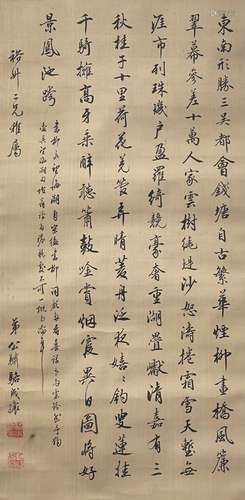 東南形勝三吳都會錢塘自古繁華煙柳畫橋風簾
翠幕參差十萬人家雲樹繞堤沙怒濤捲霜雪天塹無
涯市列珠璣戶盈羅綺競豪奢重湖疊巘清嘉有三
秋桂子十里荷花羌管弄晴菱泛夜嬉嬉釣叟蓮娃
千騎擁高牙乘醉聽簫鼓吟賞烟霞異日圖將好
景鳳池誇
二兄雅屬
弟公驌駱成驤